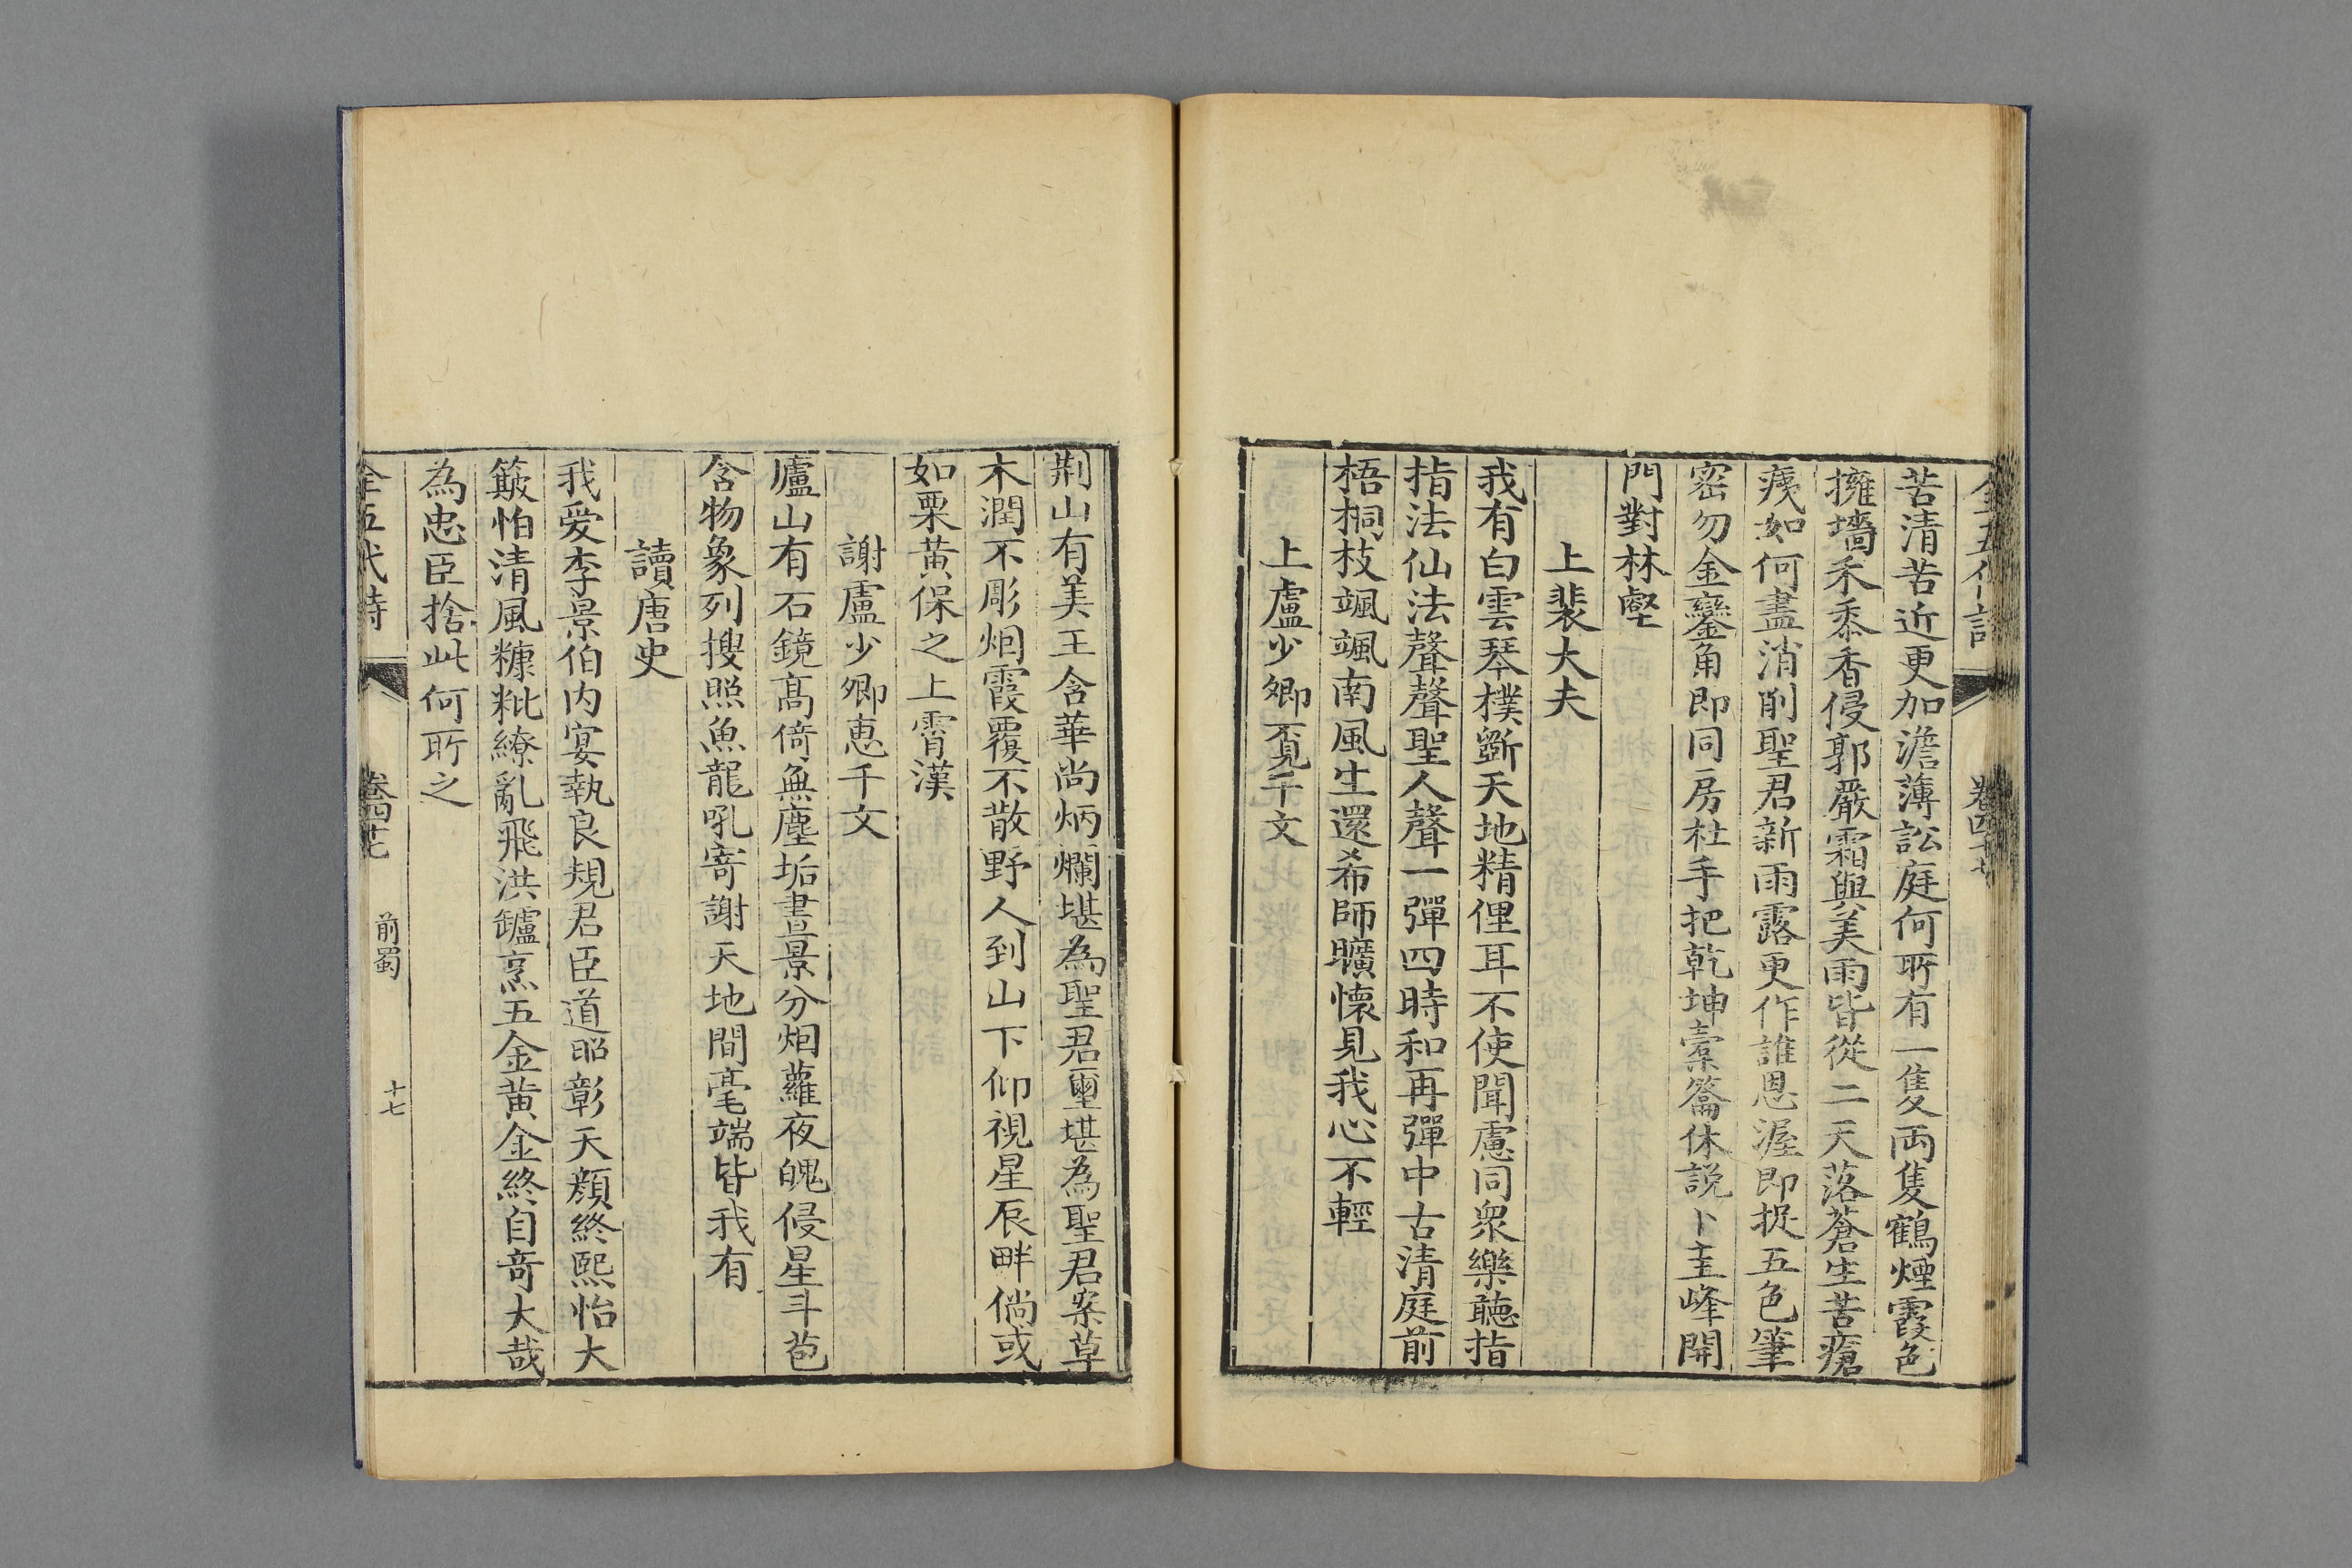 全五代詩 卷四十七
苦清苦近更加澹薄訟庭何所有一隻両隻鶴煙霞色
擁墻禾黍香侵郭嚴霜與美雨皆從二天落蒼生苦瘡
痍如何盡消削聖君新雨露更作誰恩渥即捉五色筆
密勿金鑾角即同房杜手把乾坤橐籥休説卜圭峰開
門對林壑
上裴大夫
我有白雲琴樸斵天地精俚耳不使聞慮同衆樂聽指
指法仙法聲聲聖人聲一彈四時和再彈中古清庭前
梧桐枝颯颯南風生還希師曠懷見我心不輕
上盧少卿覔千文
荆山有美玉含華尚炳爛堪為聖君璽堪為聖君案草
木潤不彫烟霞覆不散野人到山下仰視星辰畔倘或
如栗黄保之上霄漢
謝盧少卿惠千文
廬山有石鏡髙倚無塵垢晝景分烟蘿夜魄侵星斗苞
含物象列搜照魚龍吼寄謝天地間毫端皆我有
讀唐史
我愛李景伯内宴執良規君臣道昭彰天顔終熙怡大
簸怕清風糠粃繚亂飛洪罏烹五金黄金終自奇大哉
為忠臣捨此何所之
全五代詩 卷四十七 前蜀 十七